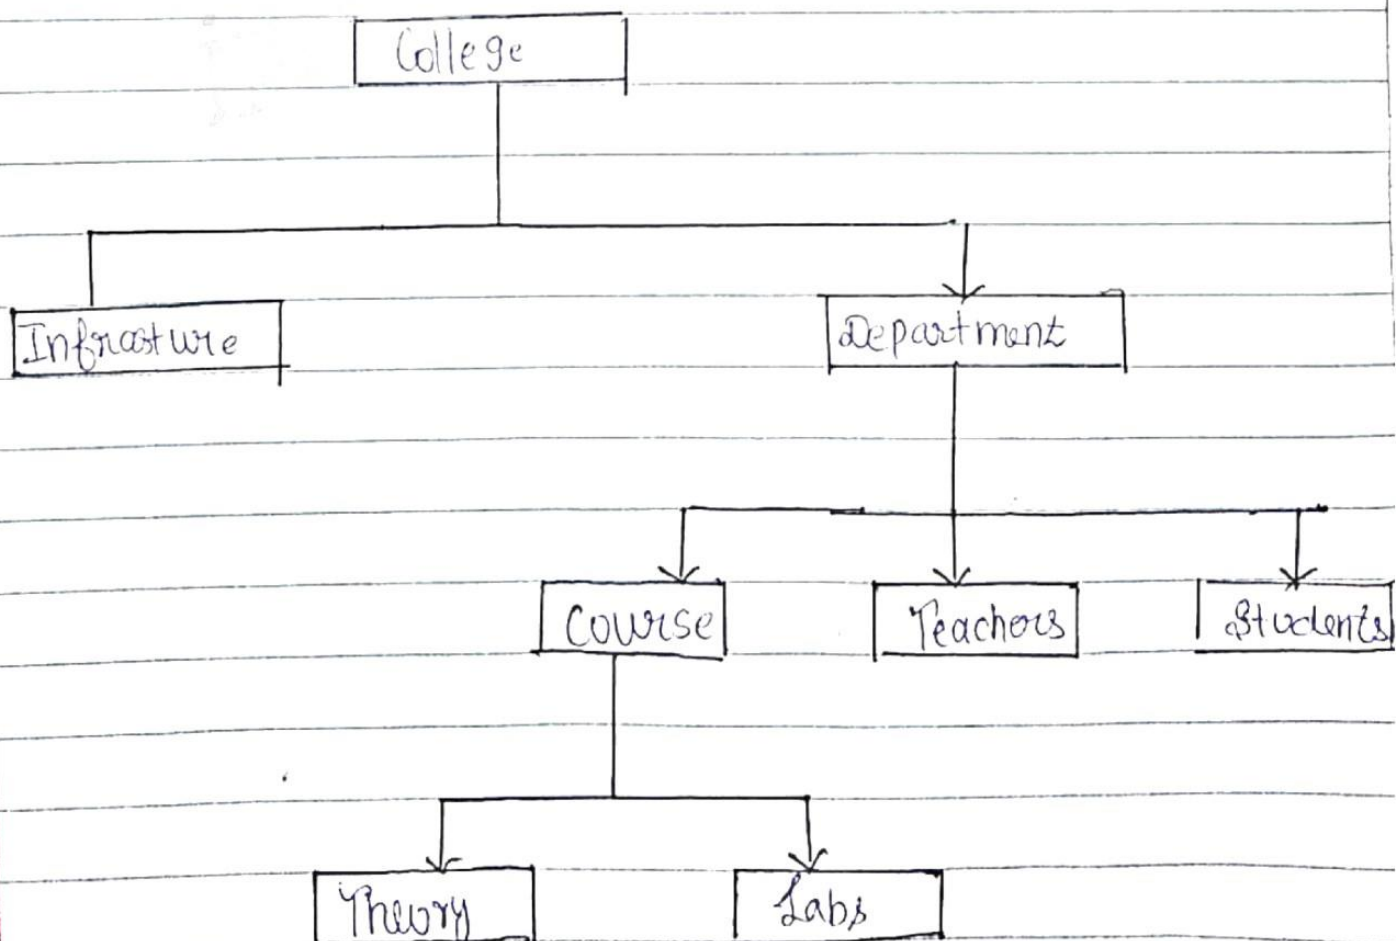 College
Infrasture
Department
Course
Teachers
Students
Theory
Labs